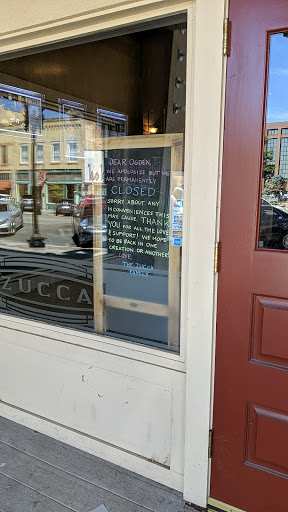 DEAR OGDEN,
WE APOLOGIZE BUT WE
ARE PERMANENTLY
CLOSED
SORRY ABOUT ANY
INCONVENIENCES THIS
MAY CAUSE. THANK
YOU FOR ALL THE LOVE
& SUPPORT! WE HOPE
TO BE BACK IN ONE
CREATION OR ANOTHER!
LOVE,
THE ZUCCA
FAMILY
ZUCCA